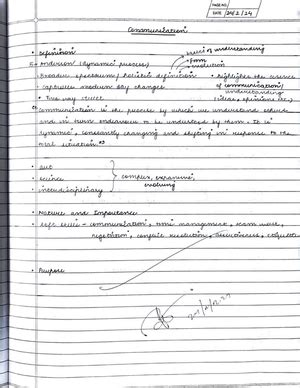 PAGE NO.
DATE 24/2/24
Communication
• Definition
basis of understanding
Anderson (dynamic process)
form
evolution
• Broader spectrum / holistic definition
• highlights the essence
• captures medium day changes
of communication/
understanding
• Two way street
(ideas, opinions etc.)
" Communication is the process by which we understand others
and in turn endeavour to be understood by them. It is
dynamic, constantly changing and shifting in response to the
total situation."
• art
• science
• interdisciplinary
complex, expansive,
evolving
• Nature and Importance
• soft skills - communication, time management, team work,
negotiation, conflict resolution, assertiveness, etiquette
• Purpose